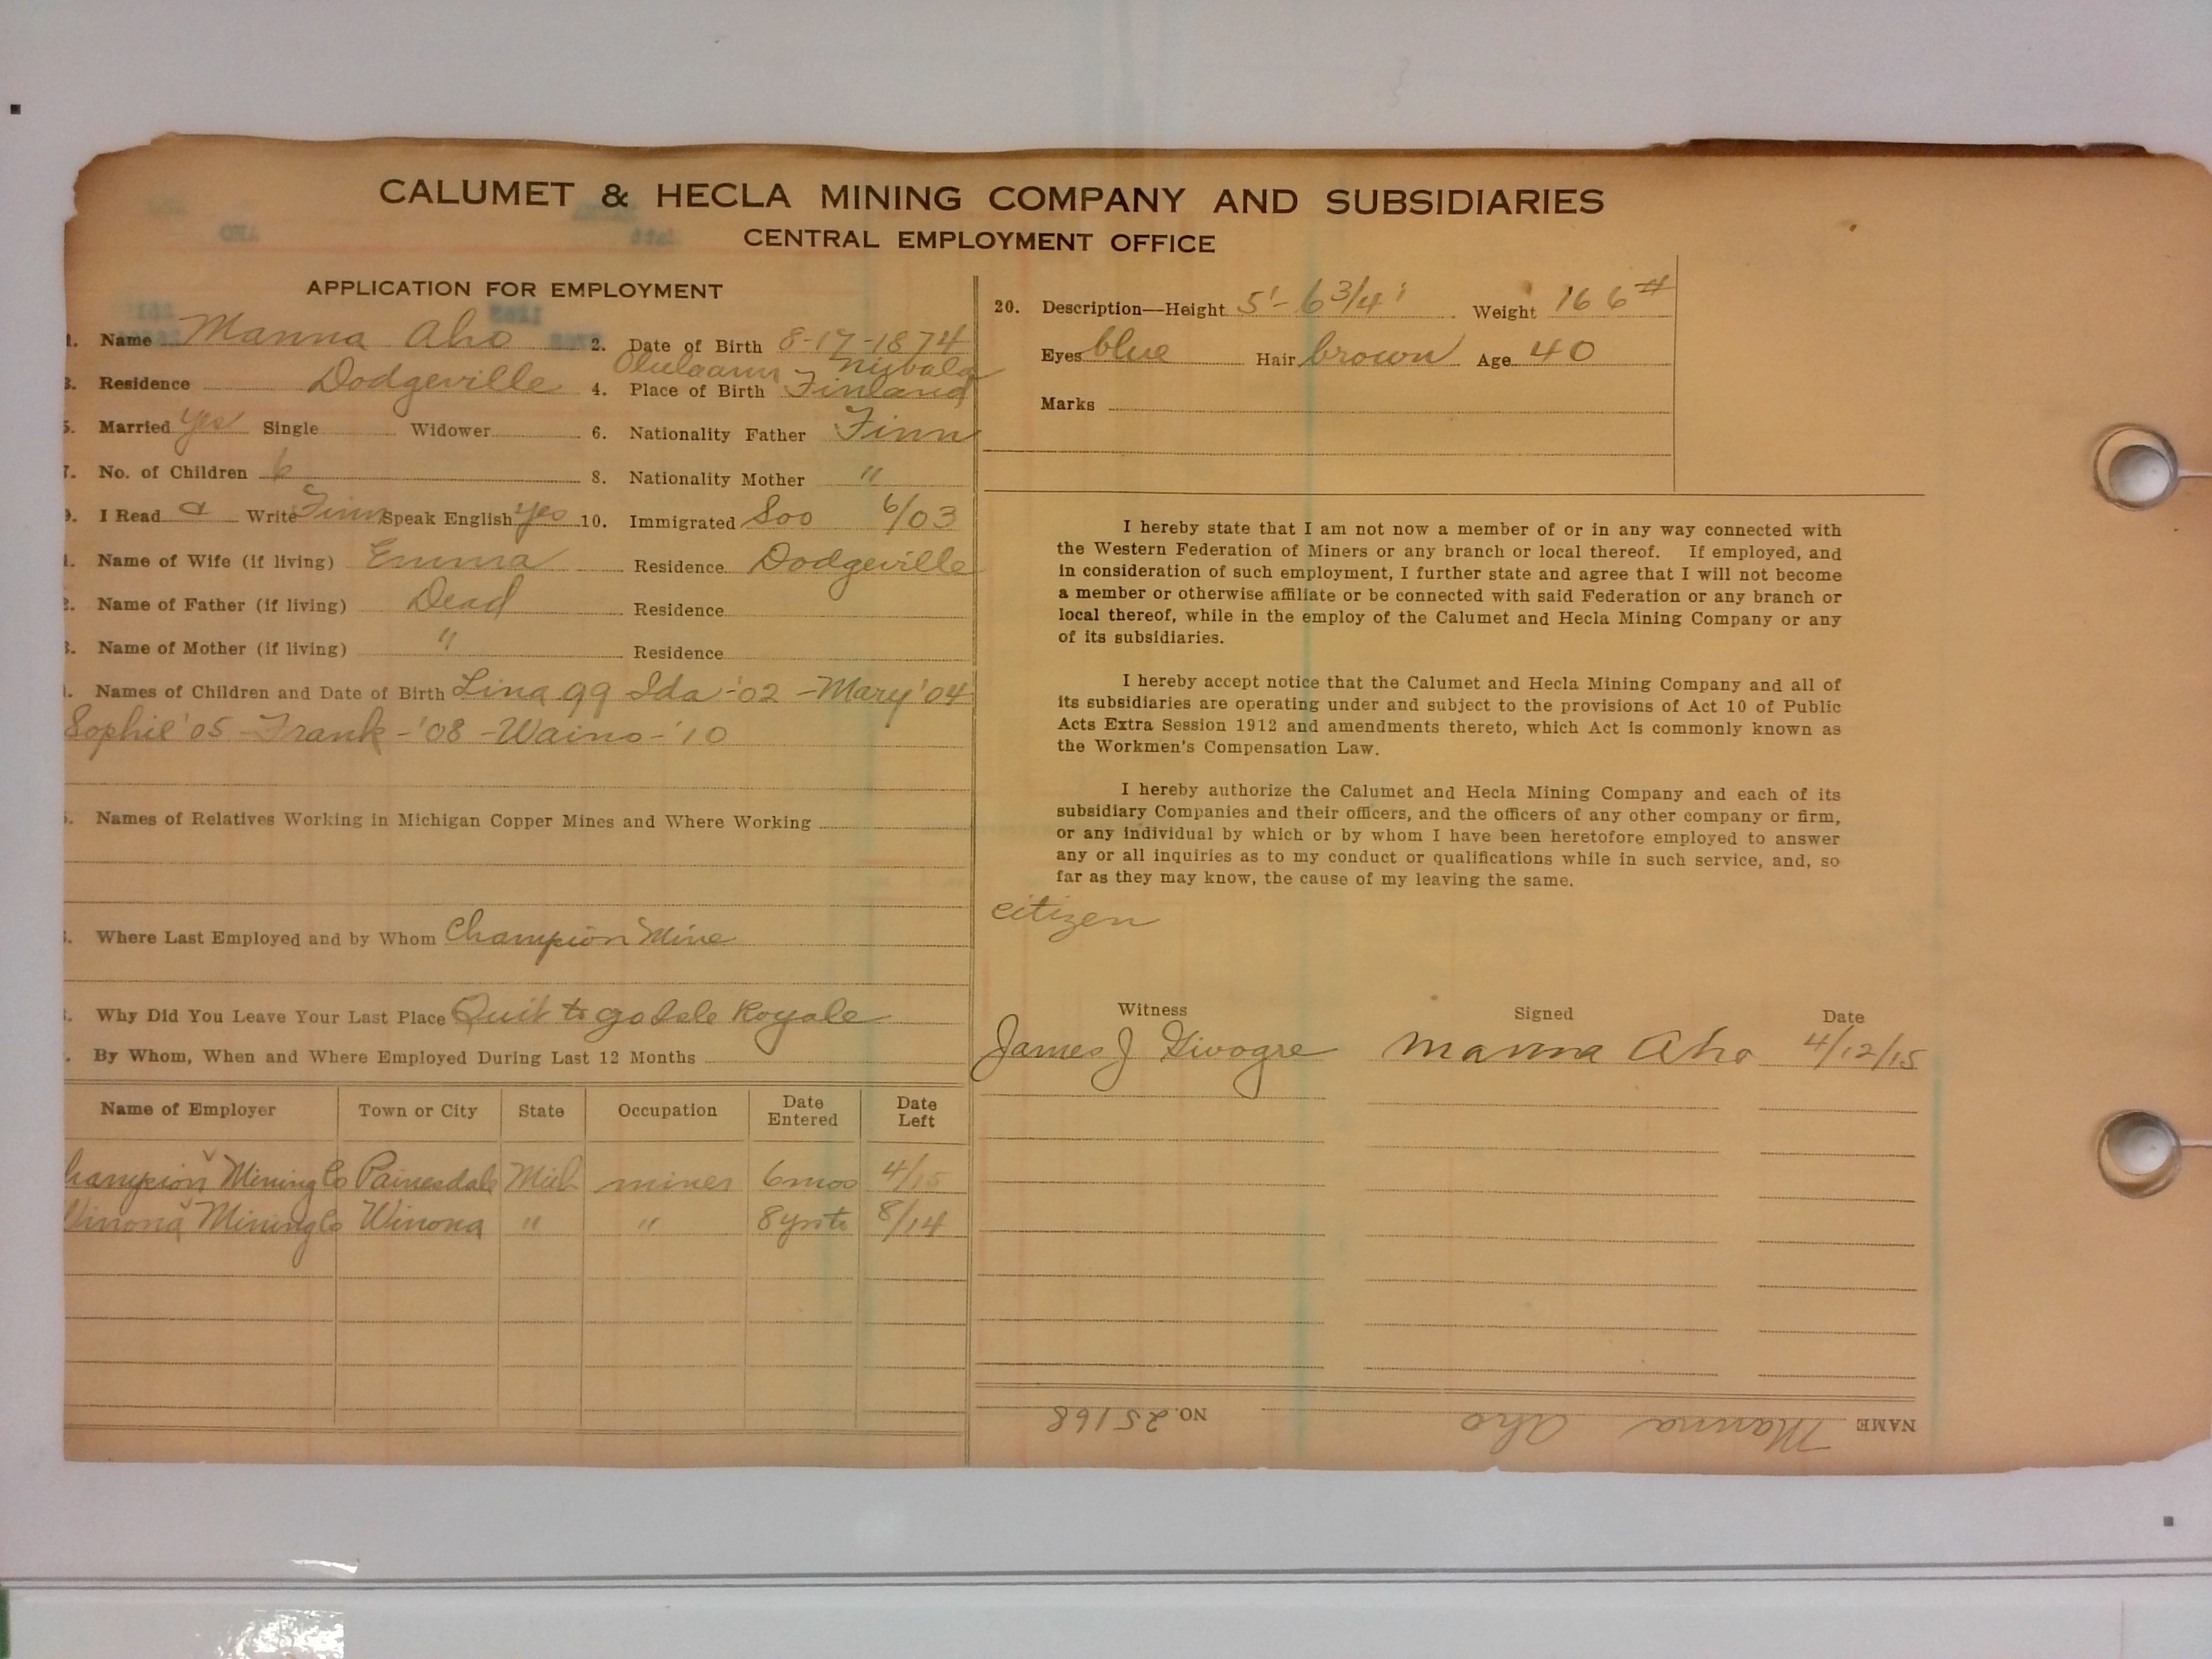 CALUMET & HECLA MINING COMPANY AND SUBSIDIARIES
CENTRAL EMPLOYMENT OFFICE
APPLICATION FOR EMPLOYMENT
1. Name Manna Aho 2. Date of Birth 8-17-1874
3. Residence Dodgeville 4. Place of Birth Finland
5. Married yes Single Widower 6. Nationality Father Finn
7. No. of Children 6 8. Nationality Mother "
9. I Read & Write Finn Speak English yes 10. Immigrated Soo 6/03
1. Name of Wife (if living) Emma Residence Dodgeville
2. Name of Father (if living) Dead Residence
3. Name of Mother (if living) " Residence
Names of Children and Date of Birth Lina 99 Ida -'02 - Mary '04
Sophie '05 - Frank - '08 - Waino - '10
Names of Relatives Working in Michigan Copper Mines and Where Working
Where Last Employed and by Whom Champion Mine
Why Did You Leave Your Last Place Quit to go Isle Royale
By Whom, When and Where Employed During Last 12 Months
Name of Employer Town or City State Occupation Date Entered Date Left
hampion Mining Co Painesdale Mich miner 6 mos 4/15
Winona Mining Co Winona " " 8 yrs 8/14
20. Description—Height 5'- 6 3/4' Weight 166 #
Eyes blue Hair brown Age 40
Marks
I hereby state that I am not now a member of or in any way connected with
the Western Federation of Miners or any branch or local thereof. If employed, and
in consideration of such employment, I further state and agree that I will not become
a member or otherwise affiliate or be connected with said Federation or any branch or
local thereof, while in the employ of the Calumet and Hecla Mining Company or any
of its subsidiaries.
I hereby accept notice that the Calumet and Hecla Mining Company and all of
its subsidiaries are operating under and subject to the provisions of Act 10 of Public
Acts Extra Session 1912 and amendments thereto, which Act is commonly known as
the Workmen's Compensation Law.
I hereby authorize the Calumet and Hecla Mining Company and each of its
subsidiary Companies and their officers, and the officers of any other company or firm,
or any individual by which or by whom I have been heretofore employed to answer
any or all inquiries as to my conduct or qualifications while in such service, and, so
far as they may know, the cause of my leaving the same.
citizen
Witness Signed Date
James J Manna Aho 4/12/15
NAME Manna Aho NO. 25168